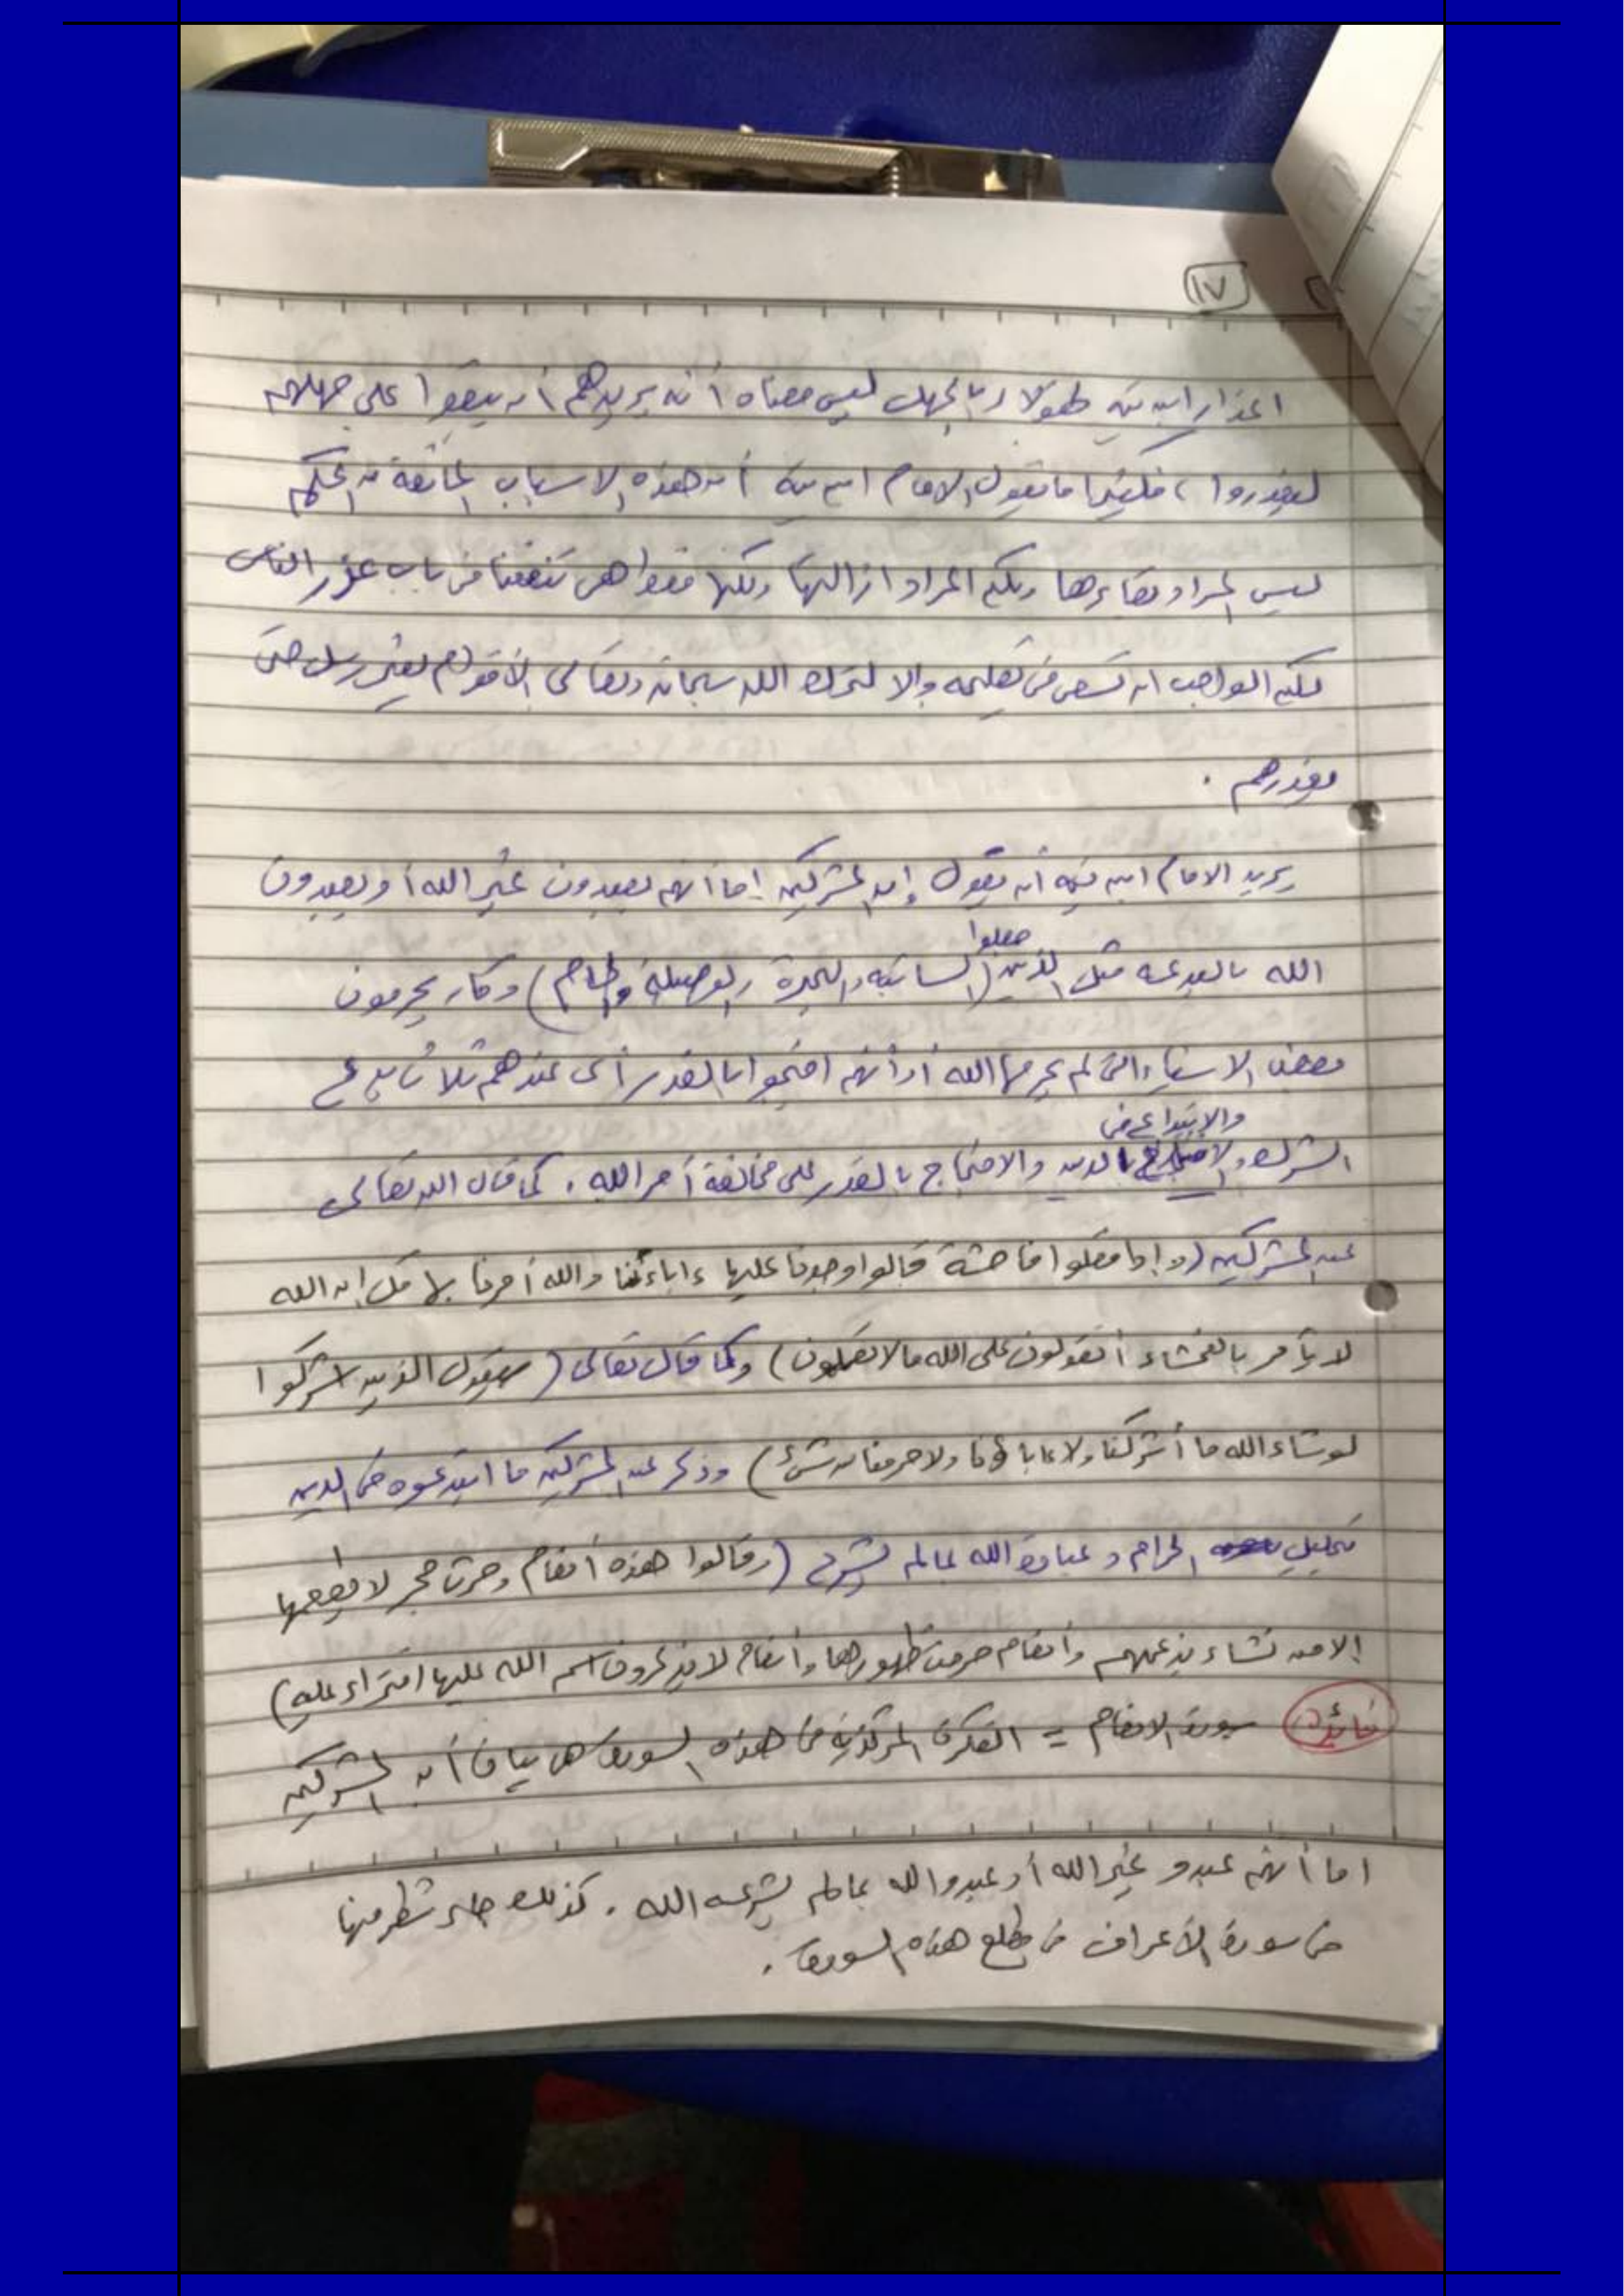 ١٧
اعذار ابن تيمية لهؤلاء بالجهل ليس معناه أنه يريدهم أن يبقوا على جهلهم
ليعذروا، فكثيرا ما يقول الامام ابن تيمية أن هذه الاسباب المانعة من الحكم
ليس المراد بقاءها ولكن المراد ازالتها ولكنها فقط هي تنفعنا في باب عذر الناس
لكن الواجب ان تسعى في تعليمه والا لترك الله سبحانه وتعالى الأقوام بغير رسل حتى
يعذرهم .
يريد الامام ابن تيمية أن يقول إن المشركين إما أنهم يعبدون غير الله أو يعبدون
جعلوا
الله بالبدعة مثل الذين (السائبة والبحيرة والوصيلة والحام) وكان يحرمون
بعض الاشياء التي لم يحرمها الله أو أنهم احتجوا بالقدر أي عندهم ثلاث بدع
والابتداع في
الشرك و الدين والاحتجاج بالقدر على مخالفة أمر الله . كما قال الله تعالى
عن المشركين (وإذا فعلوا فاحشة قالوا وجدنا عليها ءاباءنا والله أمرنا بها قل إن الله
لا يأمر بالفحشاء أتقولون على الله ما لا تعلمون) وكما قال تعالى (سيقول الذين اشركوا
لو شاء الله ما أشركنا ولا ءاباؤنا ولا حرمنا من شئ) وذكر عن المشركين ما ابتدعوه في الدين
تحليل الحرام وعبادة الله بمالم يشرع (وقالوا هذه أنعام وحرث حجر لا يطعمها
إلا من نشاء بزعمهم وأنعام حرمت ظهورها وأنعام لا يذكرون اسم الله عليها افتراء عليه)
فائدة سورة الانعام = الفكرة المركزية في هذه السورة هى بيان أن المشركين
اما أنهم عبدو غير الله أو عبدوا الله بمالم يشرعه الله . كذلك جاء شطر منها
في سورة الأعراف في مطلع هذه السورة .